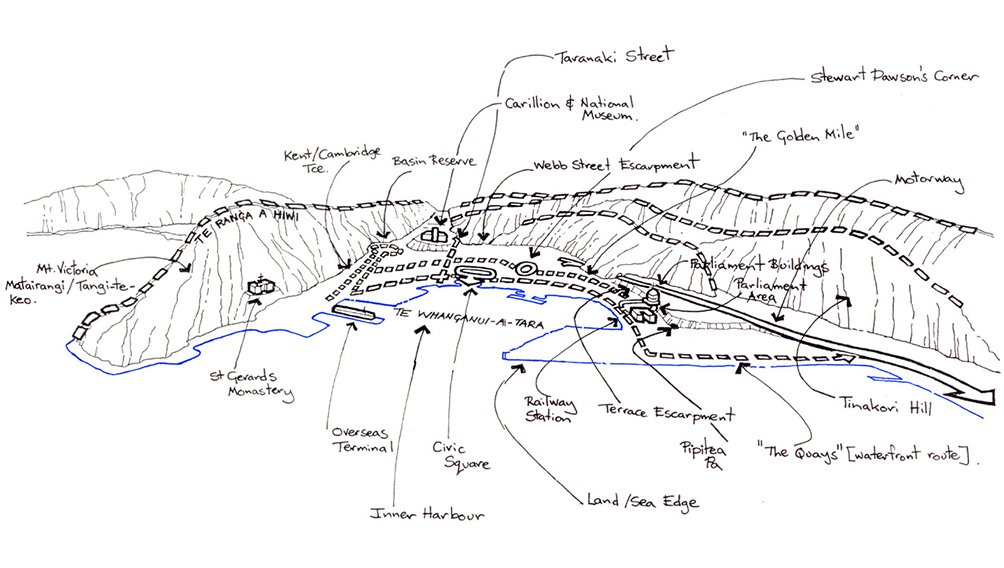 Taranaki Street
Stewart Dawson's Corner
Carillion & National
Museum.
"The Golden Mile"
Kent/Cambridge
Tce.
Basin Reserve
Webb Street Escarpment
Motorway
TE RANGA A HIWI
Mt. Victoria
Matairangi/Tangi-te-
Keo.
Parliament Buildings
Parliament
Area
TE WHANGANUI-A-TARA
St Gerards
Monastery
Railway
Station
Terrace Escarpment
Tinakori Hill
Overseas
Terminal
Civic
Square
Pipitea
Pa
"The Quays" [waterfront route].
Inner Harbour
Land/Sea Edge